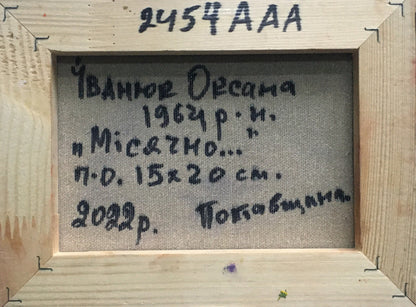 2454 ААА
Іванюк Оксана
1964 р.н.
„Місячно..."
п.о. 15х20 см.
2022р. Полтавщина.